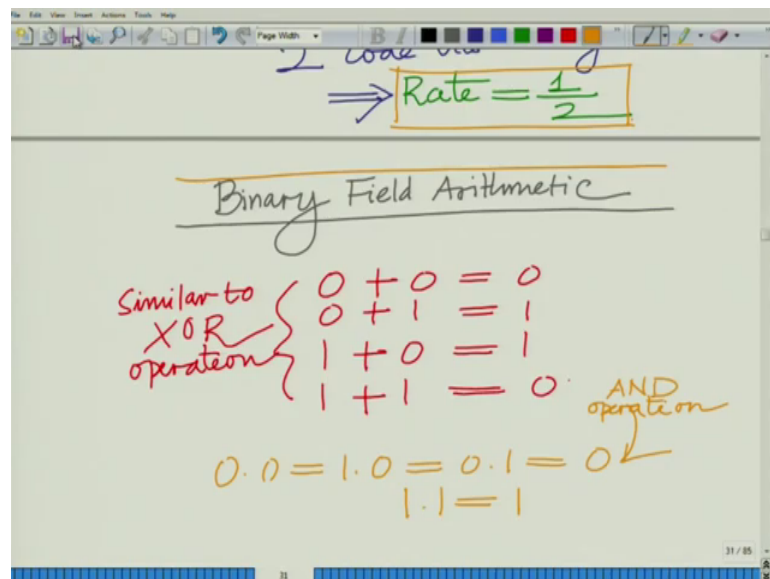 File Edit View Insert Actions Tools Help
Page Width
B I
code
⇒ Rate = 1/2
Binary Field Arithmetic
Similar to XOR operation
0 + 0 = 0
0 + 1 = 1
1 + 0 = 1
1 + 1 = 0
AND operation
0.0 = 1.0 = 0.1 = 0
1.1 = 1
31 / 85
31